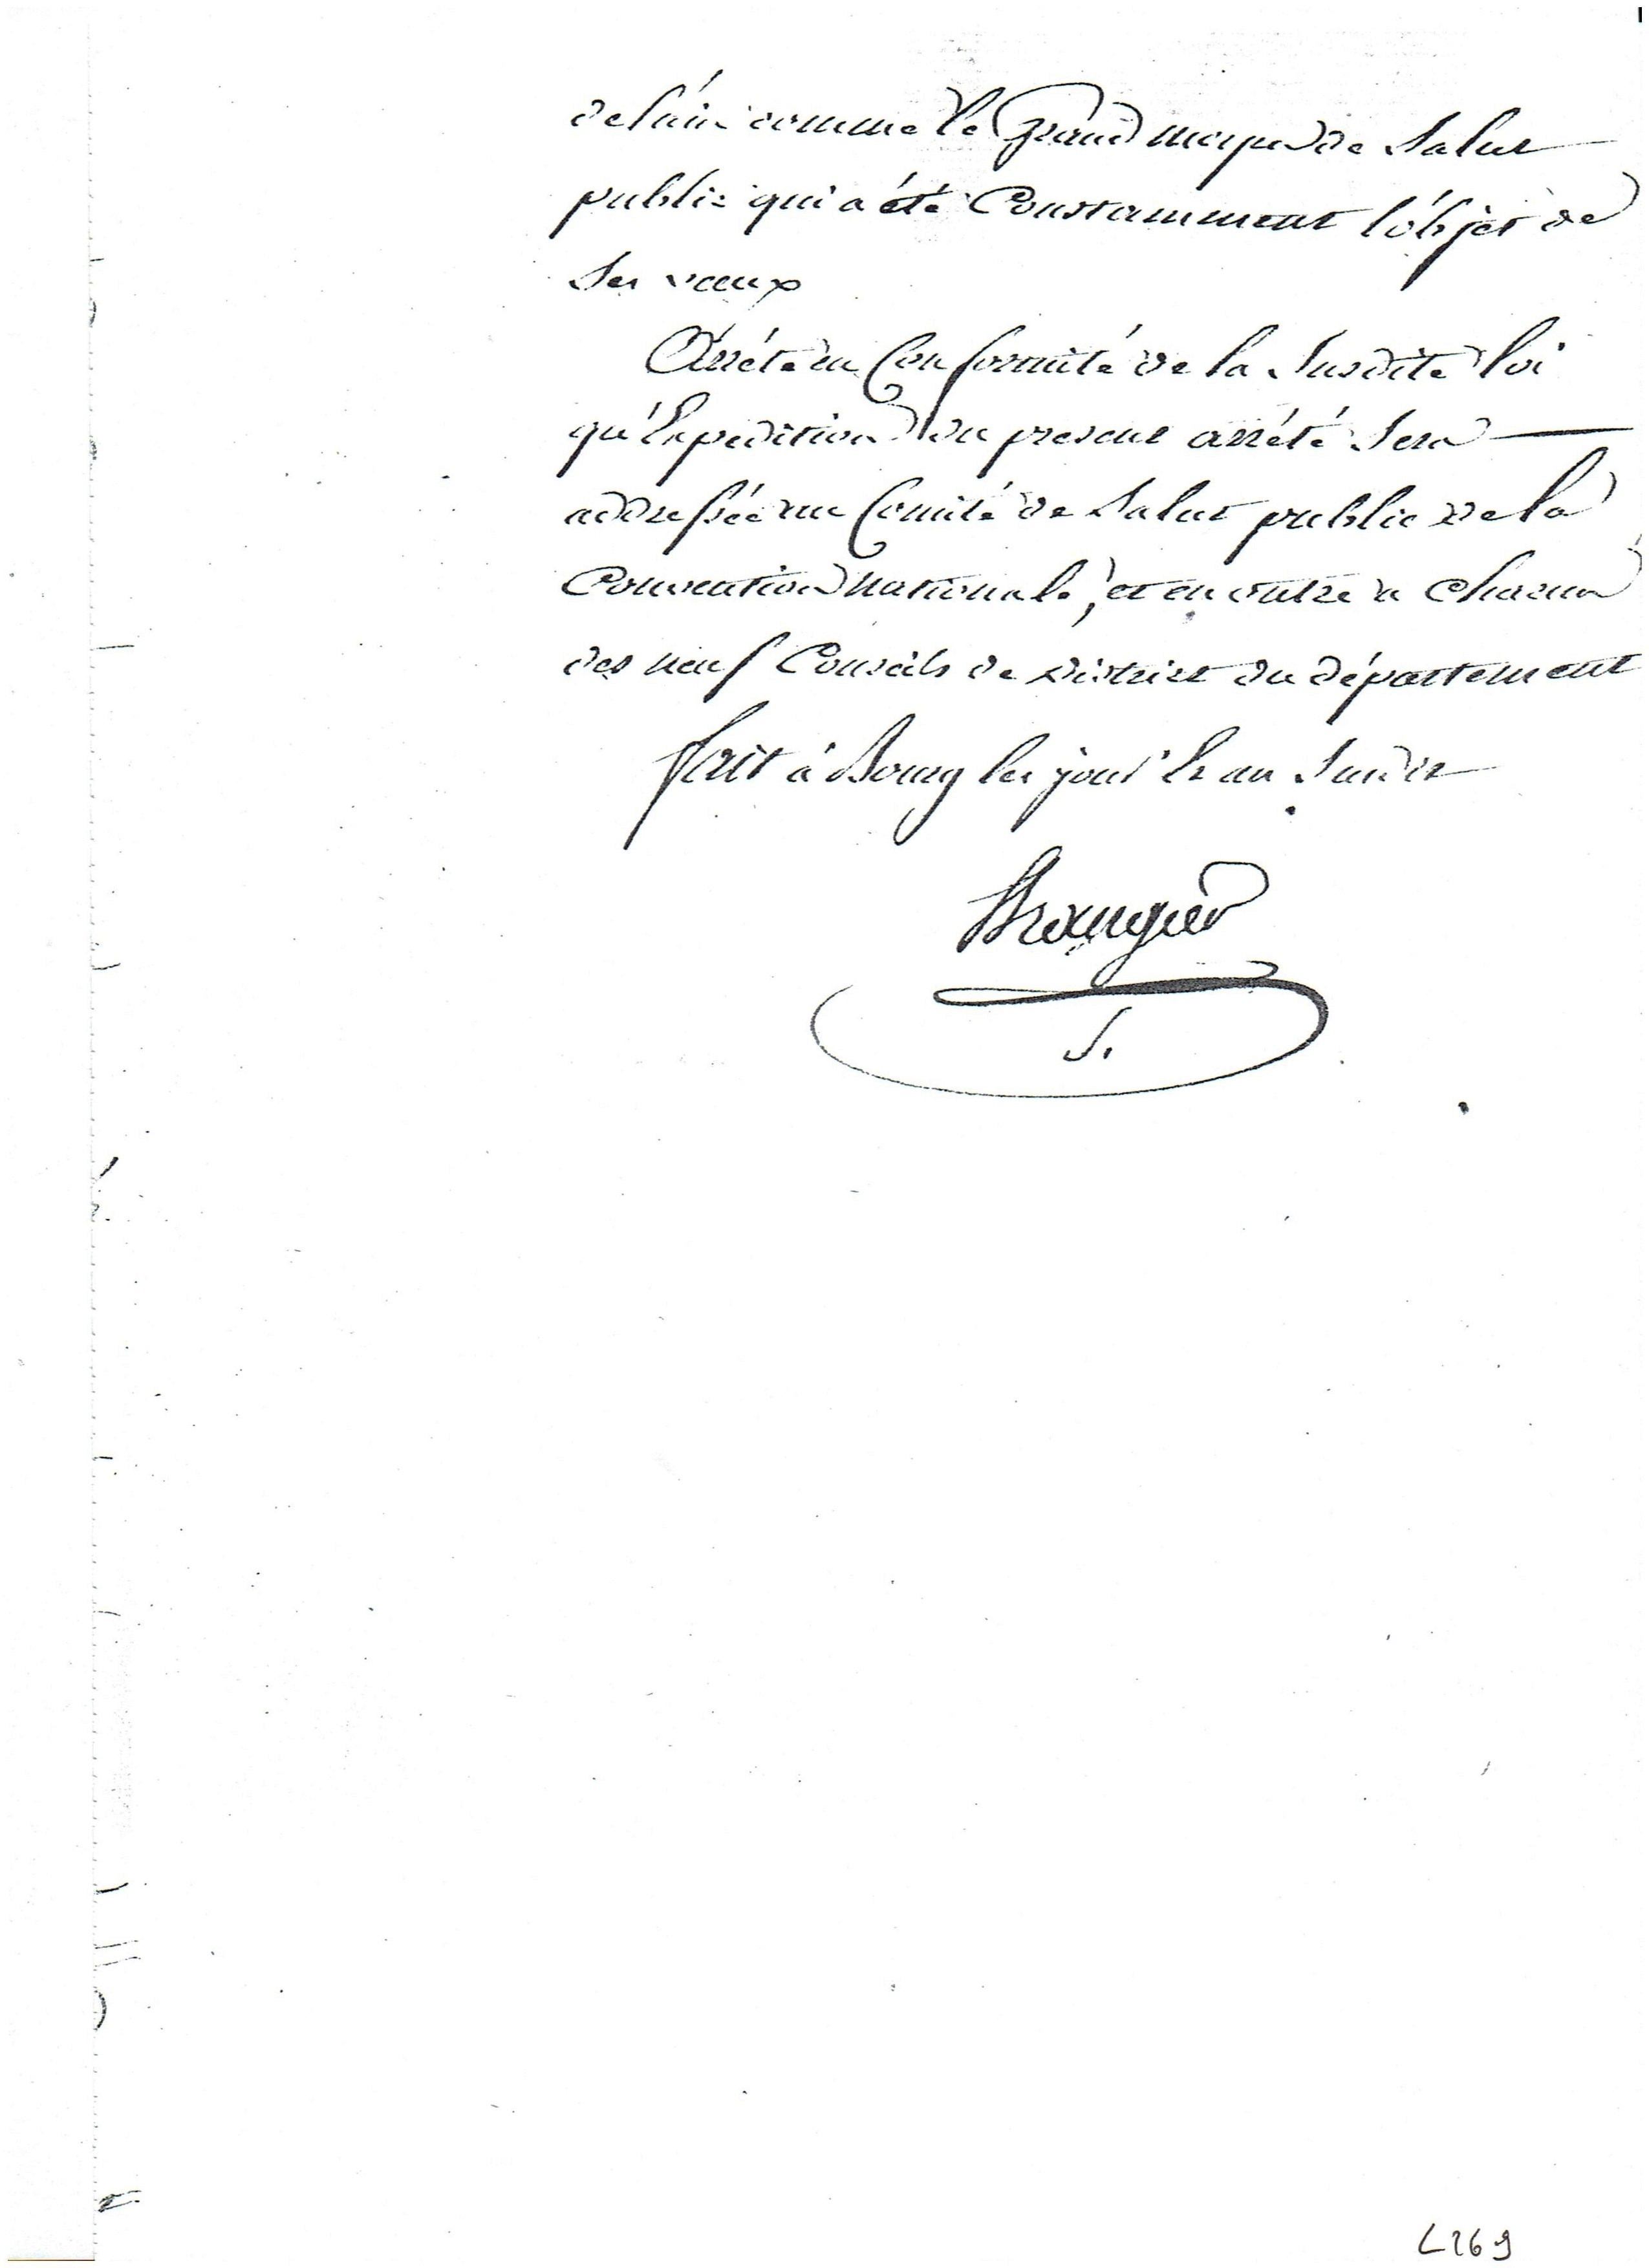 de l'ain comme le grand moyen de Salut
public qui a été Constamment l'objet de
Ses vœux
Arrête en Conformité de la Susdite loi
qu'Expedition du present arrêté Sera
addressée au Comité de Salut public de la
Convention nationale, et en outre a chacun
des neuf Conseils de district du département
fait à Bourg les jour & an Susdit
Brangier
S.
L269